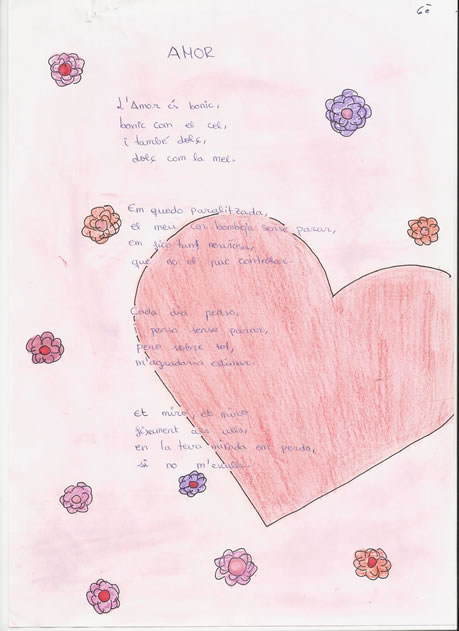 6è
AMOR
L'Amor és bonic,
bonic com el cel,
i també dolç,
dolç com la mel.
Em quedo paralitzada,
el meu cor bombeja sense parar,
em fico tant nerviosa,
que no el puc controlar.
Cada dia penso,
i penso sense parar,
però sobre tot,
m'agradaria estimar.
et miro, et miro
fixament als ulls,
en la teva mirada em perdo,
si no m'evalls.